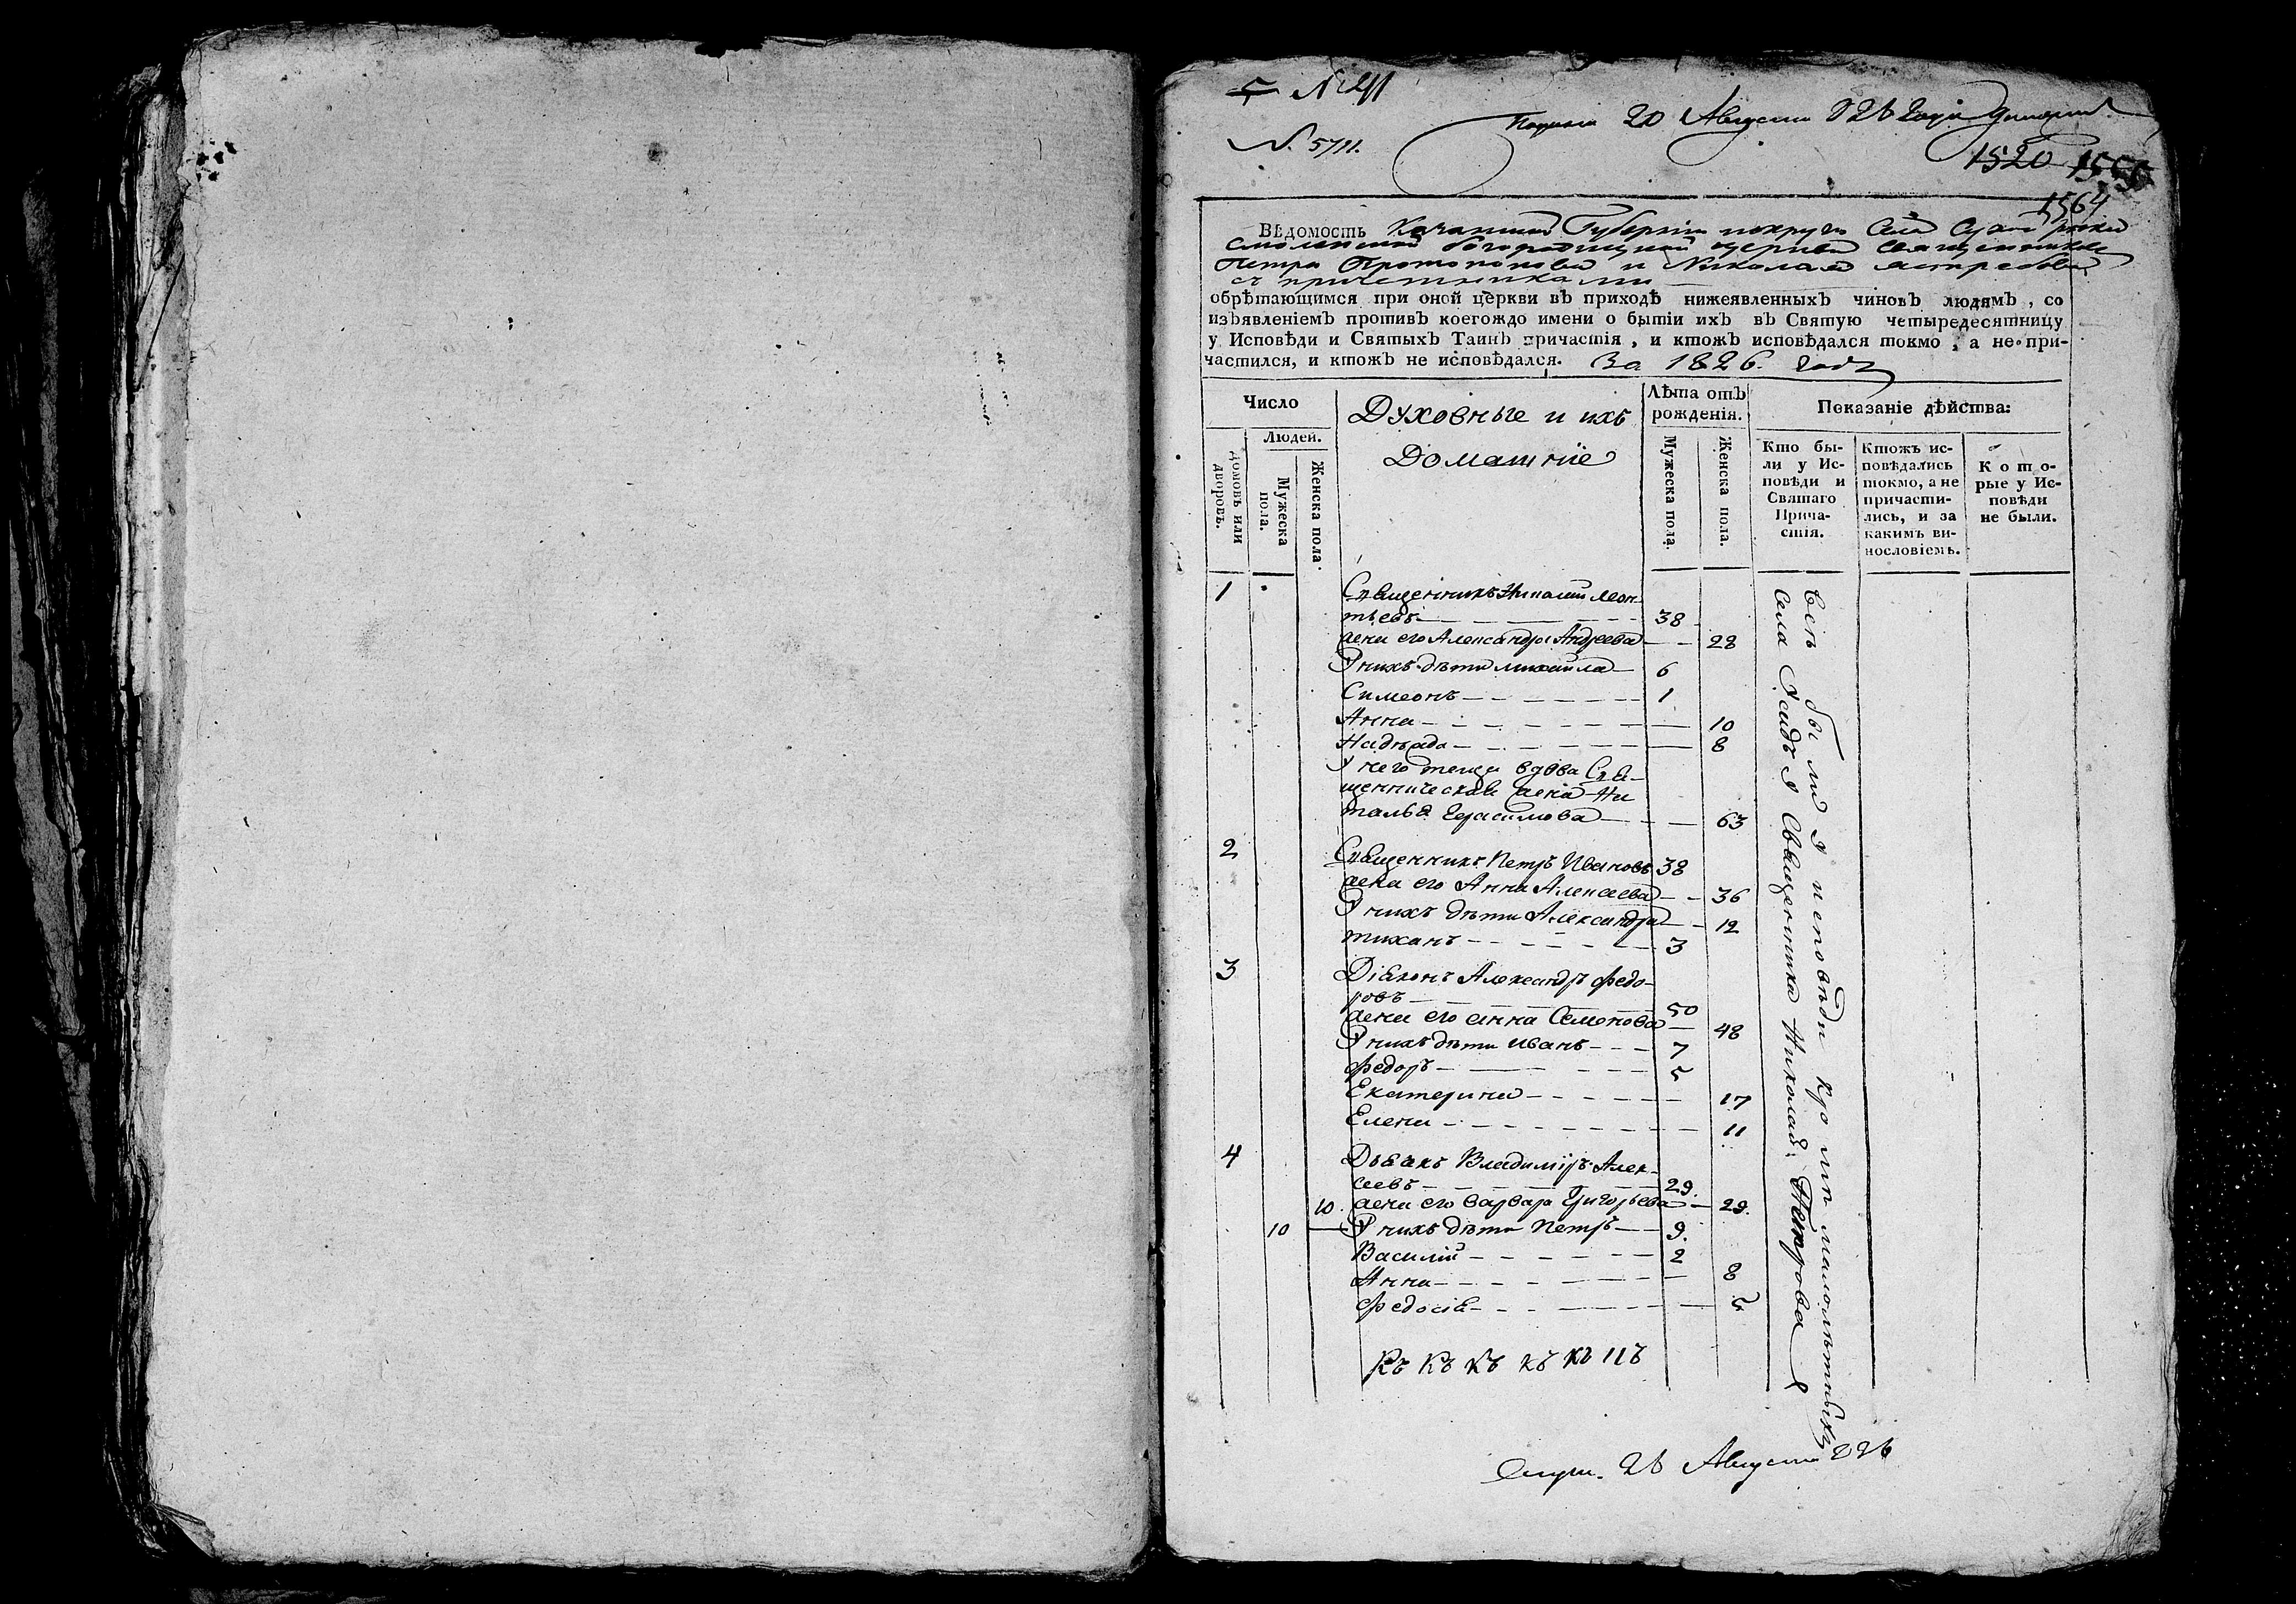 № 41
№ 5711.
20 Августа 826 года
1520
1564
Вѣдомость Казанской Губерніи округи Села
Смоленской богородицкой церкви Священниковъ
Петра Протопопова и Николая
съ причетниками
обрѣтающимся при оной церкви въ приходѣ нижеявленныхъ чиновъ людямъ, со
изъявленіемъ противъ коегождо имени о бытіи ихъ въ Святую четыредесятницу
у Исповѣди и Святыхъ Таинъ причастія, и ктожъ исповѣдался токмо, а не при-
частился, и ктожъ не исповѣдался. За 1826. годъ
Число
Людей.
Домовъ или дворовъ.
Мужеска пола.
Женска пола.
Духовные и ихъ
Домашніе
Лѣта отъ
рожденія.
Мужеска пола.
Женска пола.
Показаніе дѣйства:
Кто бы-
ли у Ис-
повѣди и
Святаго
Прича-
стія.
Ктожъ ис-
повѣдались
токмо, а не
причасти-
лись, и за
какимъ ви-
нословіемъ.
Кото-
рые у Ис-
повѣди
не были.
1 Священникъ Николай Леон-
тьевъ 38
жена его Александра Андреева 28
У нихъ дѣти михаила 6
Симеонъ 1
Анна 10
Надежда 8
У него теща вдова Свя-
щенническая жена На
талья Герасимова 63
2 Священникъ Петръ Ивановъ 38
жена его Анна Алексеева 36
У нихъ дѣти Александра 12
тиханъ 3
3 Діаконъ Александръ Федо-
ровъ 50
жена его анна Семенова 48
У нихъ дѣти иванъ 7
Федоръ 5
Екатерина 17
Елена 11
4 Дьячкъ Владиміръ Алек-
сеевъ 29.
10. жена его варвара Григорьева 29.
10 У нихъ дѣти Петръ 9.
Василій 2
Анна 8
Федосія 5
Къ Къ Къ къ къ
Всѣ были у исповѣди малолѣтныхъ
села Священника Николай Петрова
26 Августа 826